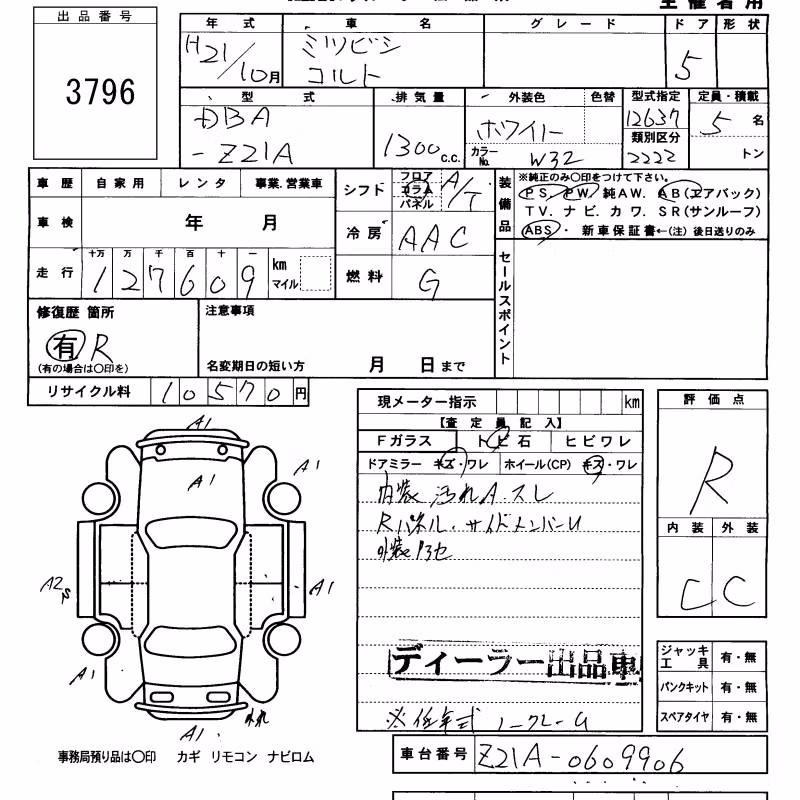 主催者用
出品番号
3796
年式 車名 グレード ドア 形状
H21/10月 ミツビシ コルト 5
型式 排気量 外装色 色替 型式指定 定員・積載
DBA-Z21A 1300c.c. ホワイト 12637 5名
カラーNo. W32 類別区分 2222 トン
車歴 自家用 レンタ 事業.営業車
シフト フロア コラム パネル A/T
装備品
※純正のみ〇印をつけて下さい。
PS. PW. 純AW. AB(エアバック)
TV. ナビ. カワ. SR(サンルーフ)
ABS・ 新車保証書←(注)後日送りのみ
車検 年 月
冷房 AAC
走行 十万 万 千 百 十 一
127609 km マイル
燃料 G
セールスポイント
修復歴 箇所
有 R
(有の場合は〇印を)
注意事項
名変期日の短い方 月 日まで
リサイクル料 10570円
現メーター指示 km
【査定員記入】
Fガラス トビ石 ヒビワレ
ドアミラー キズ・ワレ ホイール(CP) キズ・ワレ
内装 汚れA.スレ
Rパネル.サイドメンバーU
外装
ディーラー出品車
※低年式 ノークレーム
評価点
R
内装 外装
C C
ジャッキ工具 有・無
パンクキット 有・無
スペアタイヤ 有・無
A1
A1
A1
A2
A1
A1
A1
事務局預り品は〇印 カギ リモコン ナビロム
車台番号 Z21A-0609906